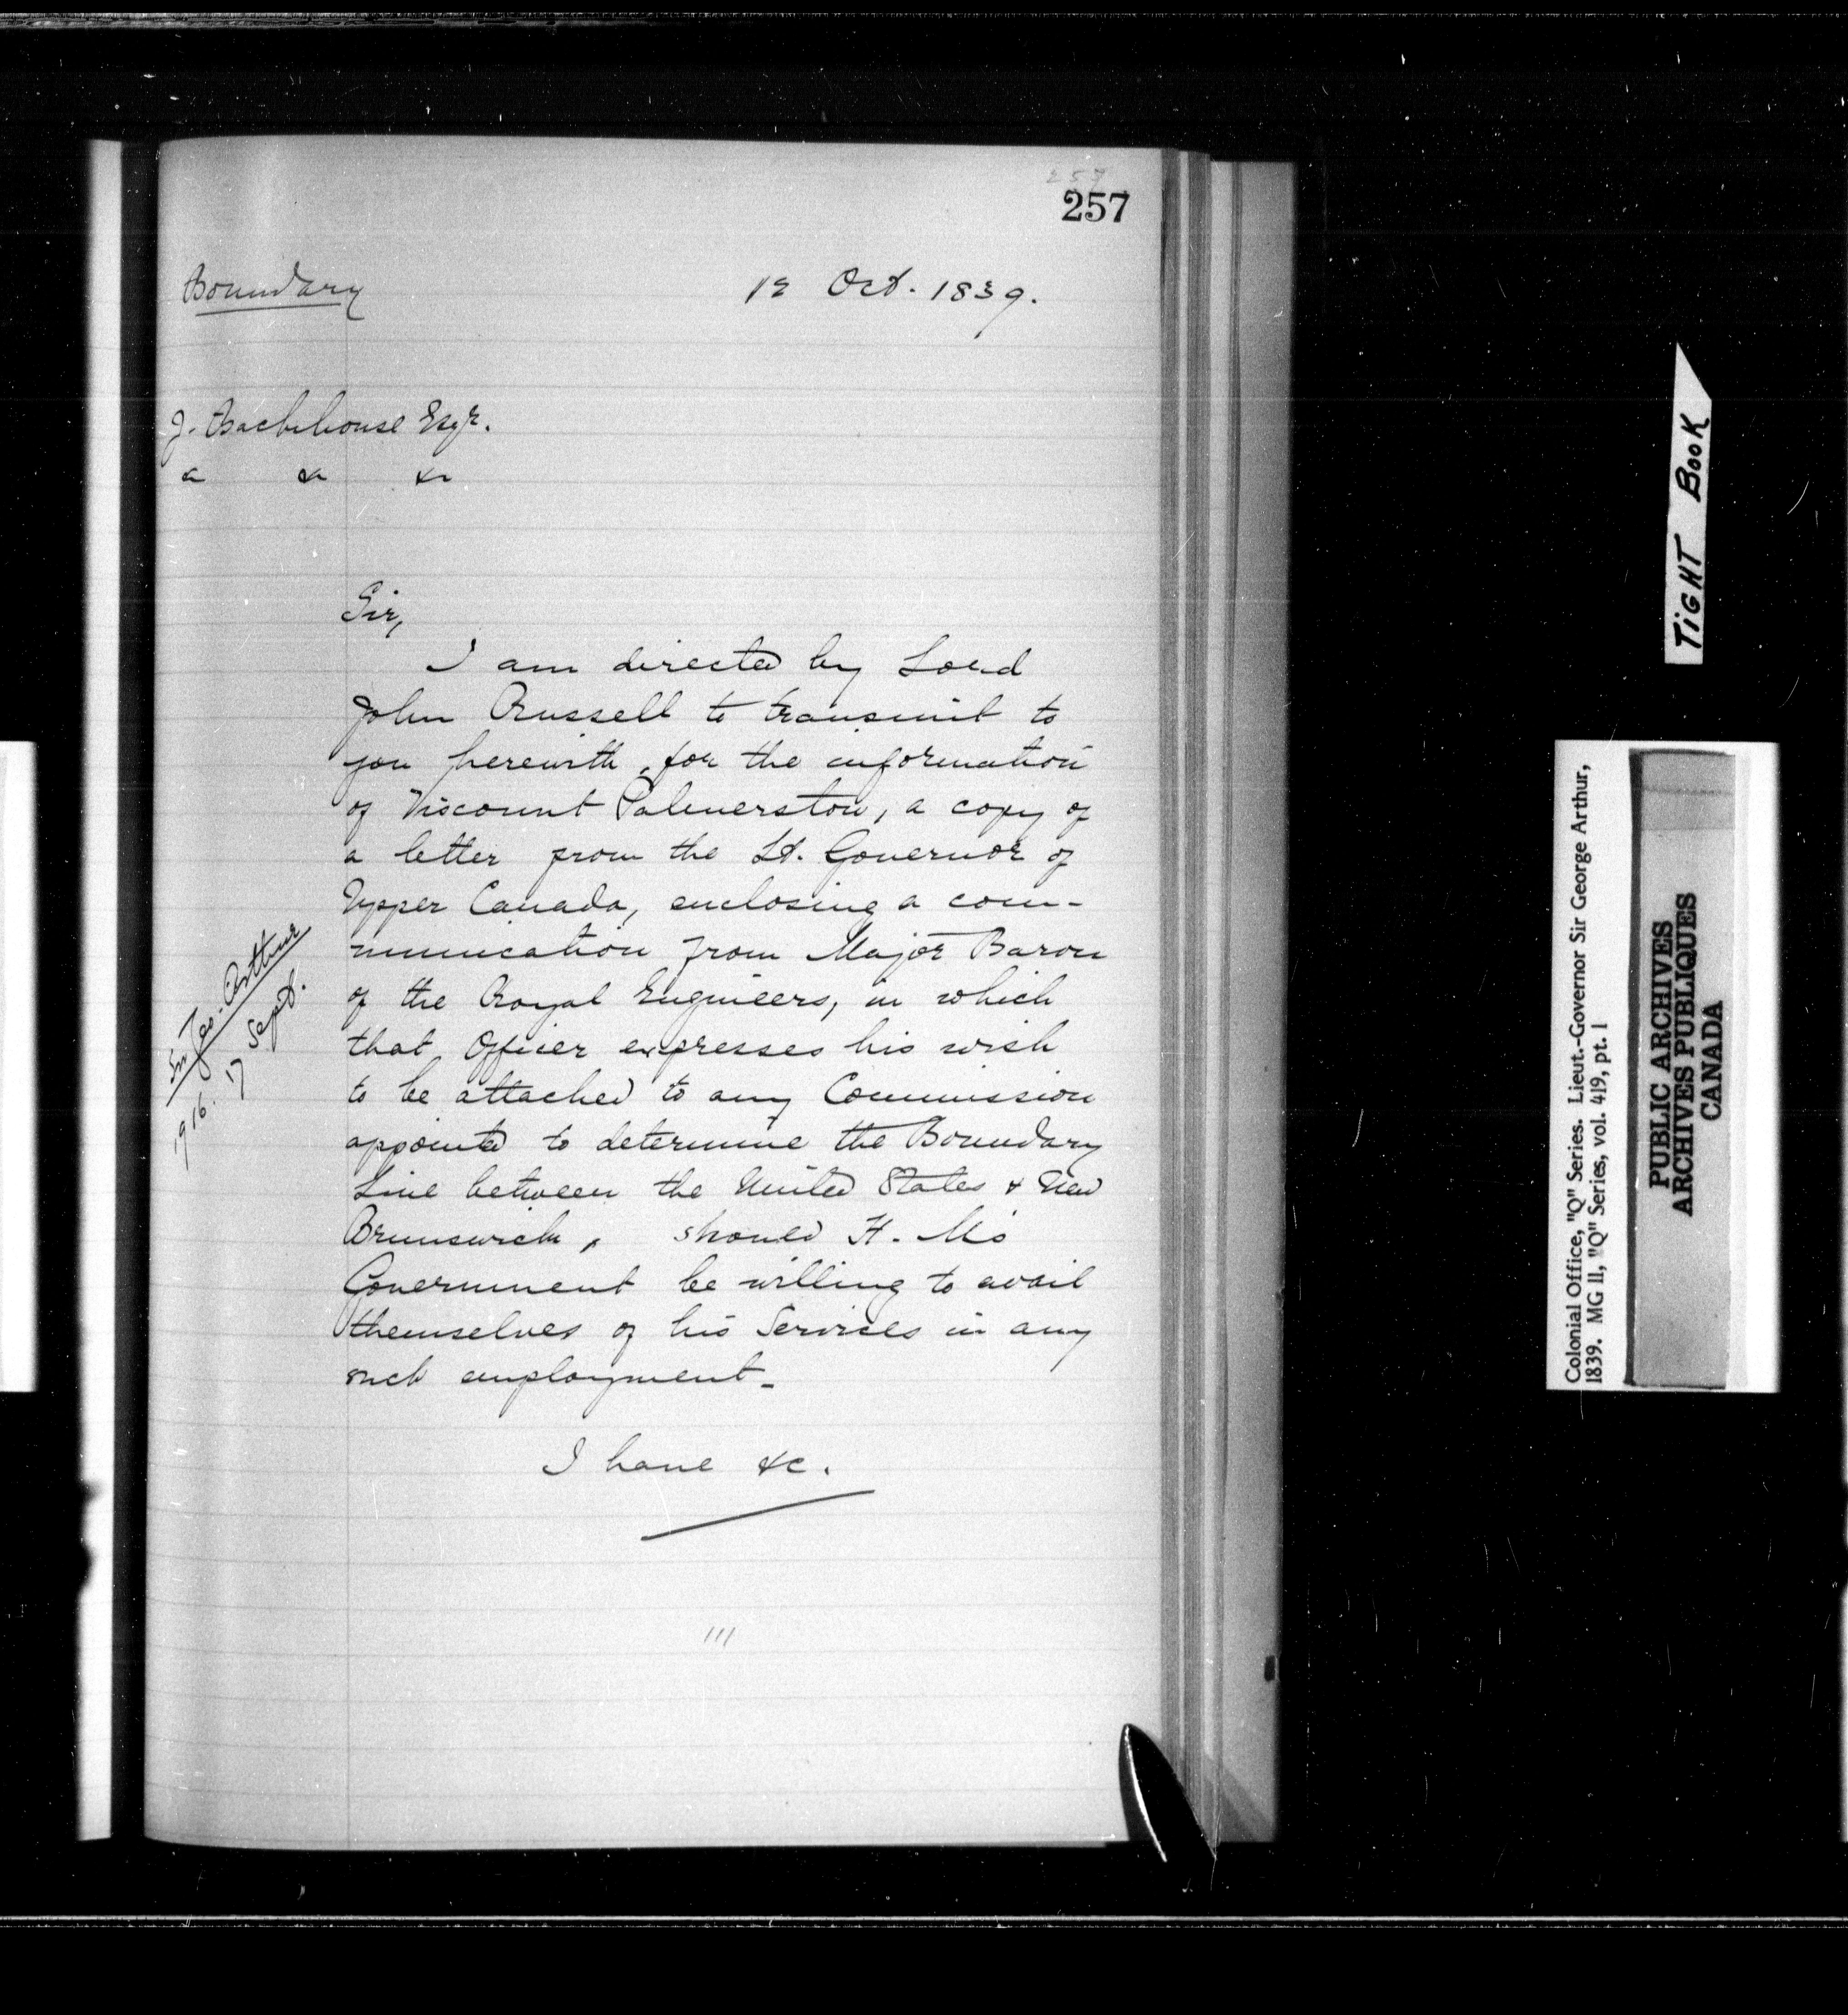 257
257
Boundary
12 Oct. 1839.
J. Backhouse Esqr.
& & &c
Sir,
I am directed by Lord
John Russell to transmit to
you herewith, for the information
of Viscount Palmerston, a copy of
a letter from the Lt. Governor of
Upper Canada, enclosing a com-
munication from Major Baron
of the Royal Engineers, in which
that Officer expresses his wish
to be attached to any Commission
appointed to determine the Boundary
Line between the United States & New
Brunswick, should H. M's
Government be willing to avail
themselves of his Services in any
such employment_
I have &c.
Sir Geo. Arthur
1916. 17 Sept.
111
TIGHT BOOK
Colonial Office, "Q" Series. Lieut.-Governor Sir George Arthur,
1839. MG 11, "Q" Series, vol. 419, pt. 1
PUBLIC ARCHIVES
ARCHIVES PUBLIQUES
CANADA